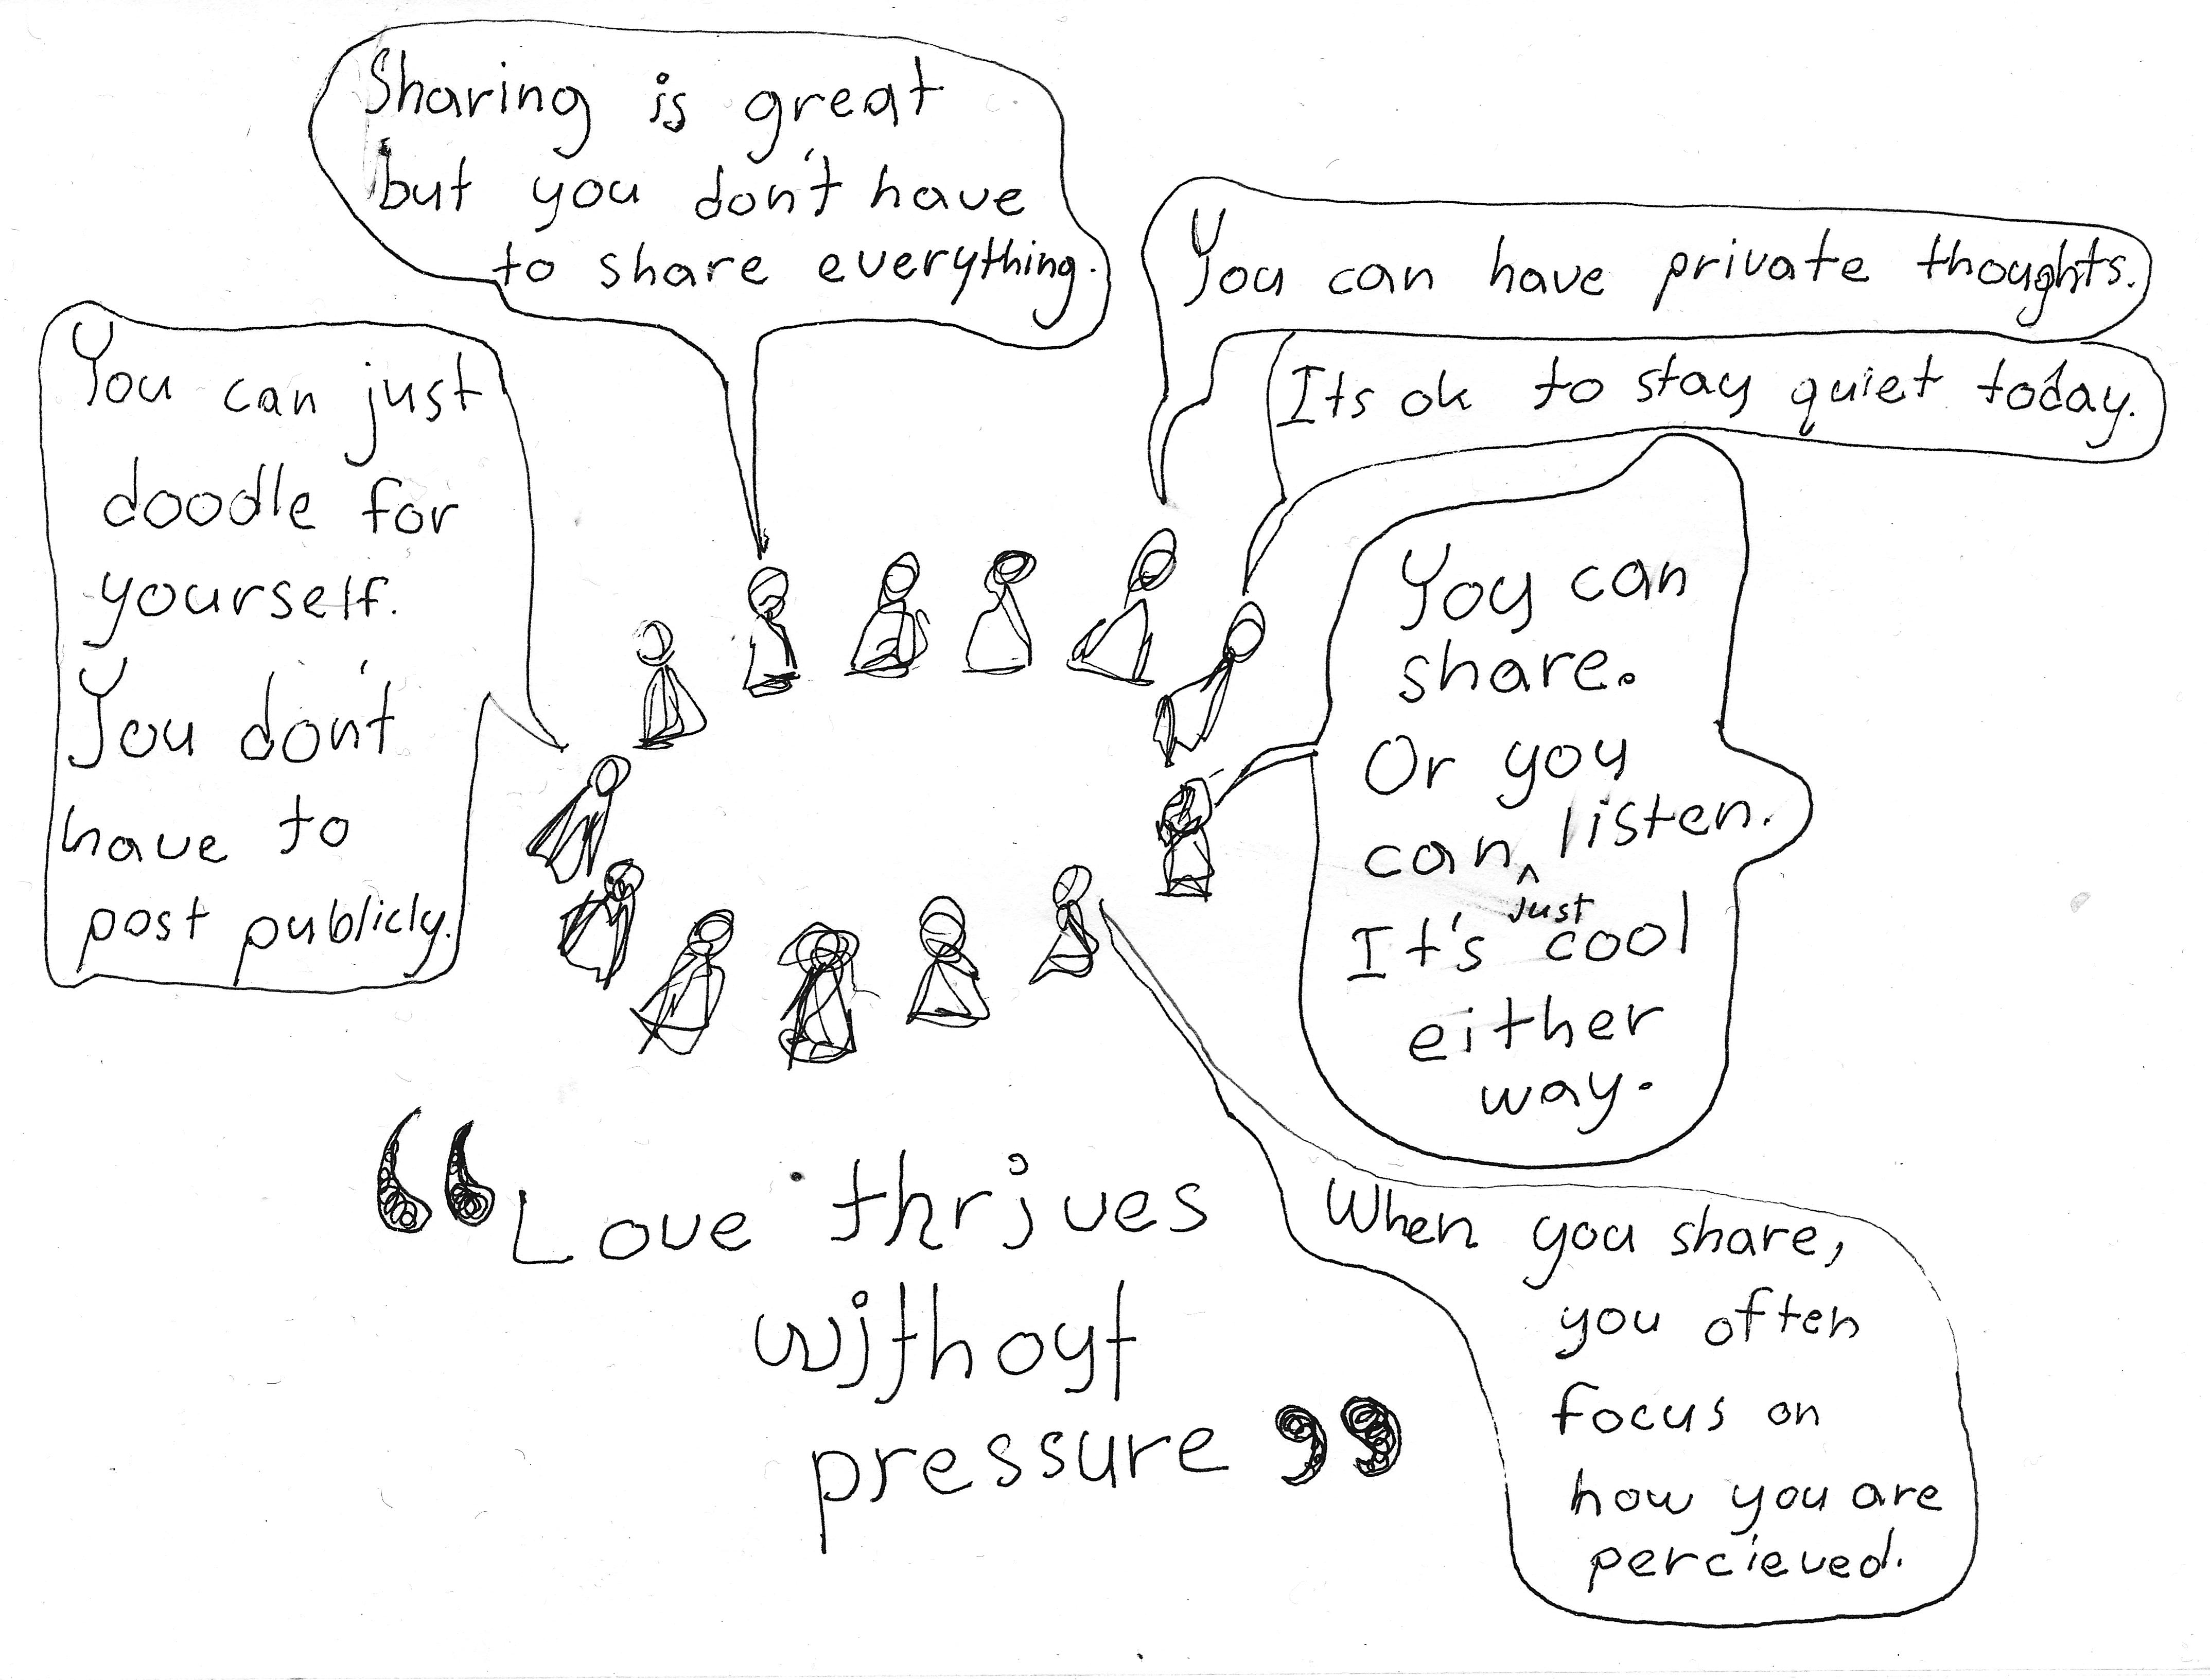 Sharing is great
but you don't have
to share everything.
You can have private thoughts.
Its ok to stay quiet today.
You can just
doodle for
yourself.
You don't
have to
post publicly.
You can
share.
Or you
can just listen.
It's cool
either
way.
“Love thrives
without
pressure”
When you share,
you often
focus on
how you are
percieved.